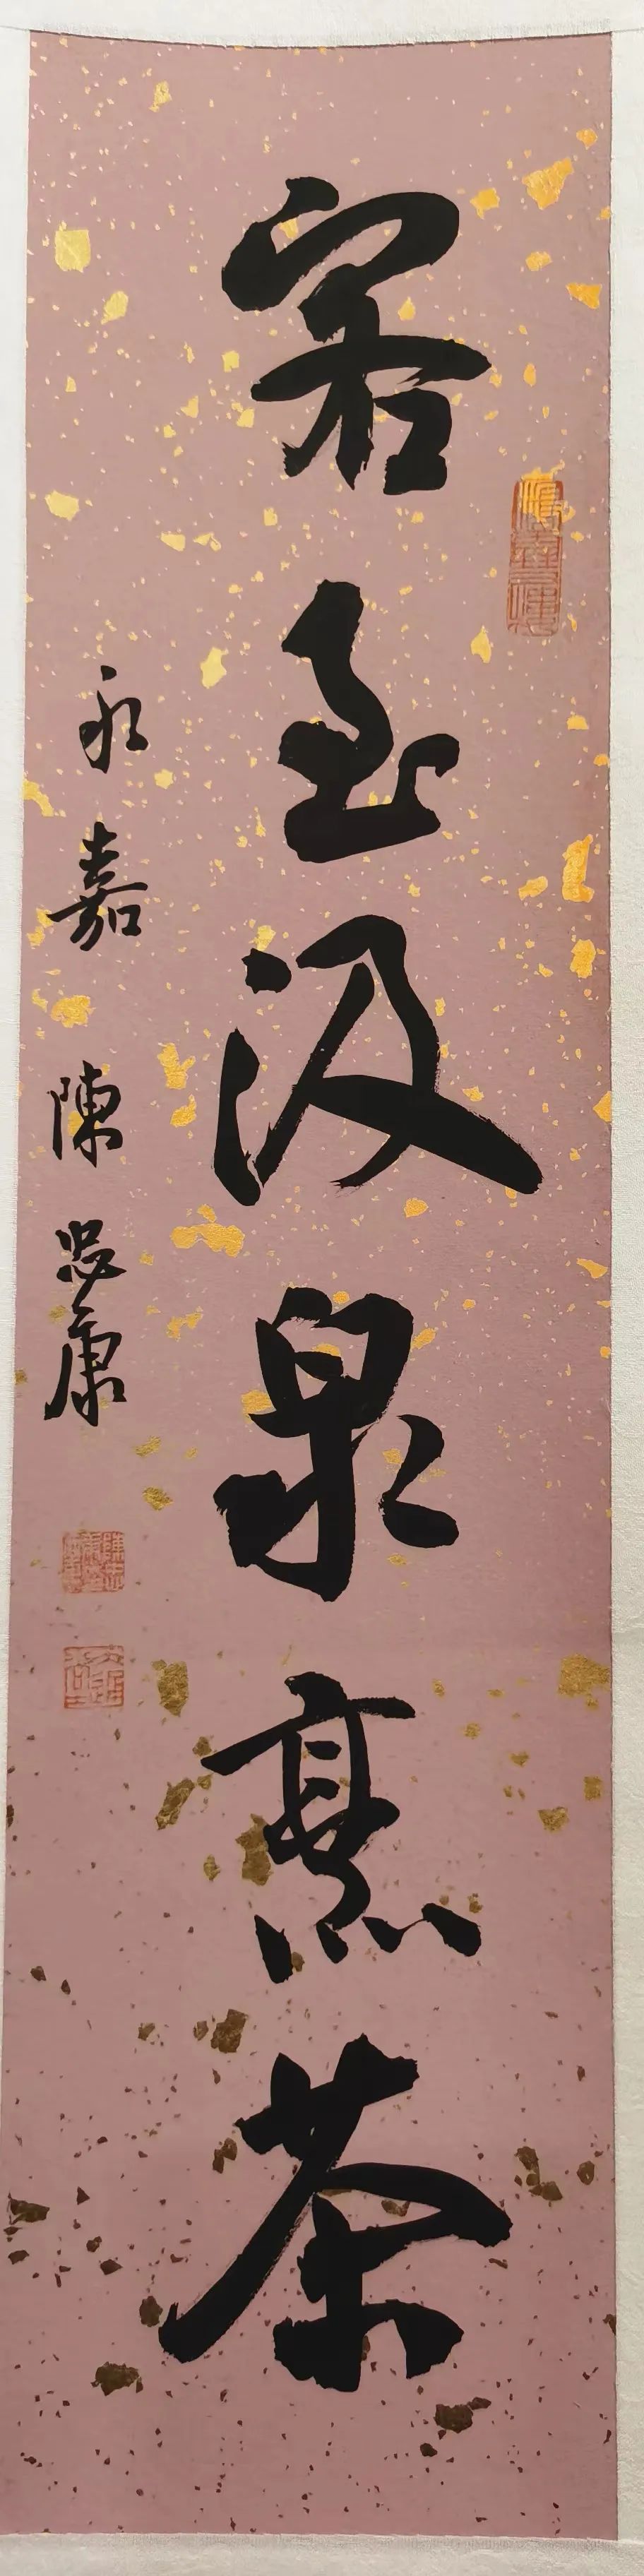 客至汲泉烹茶
永嘉陳忠康